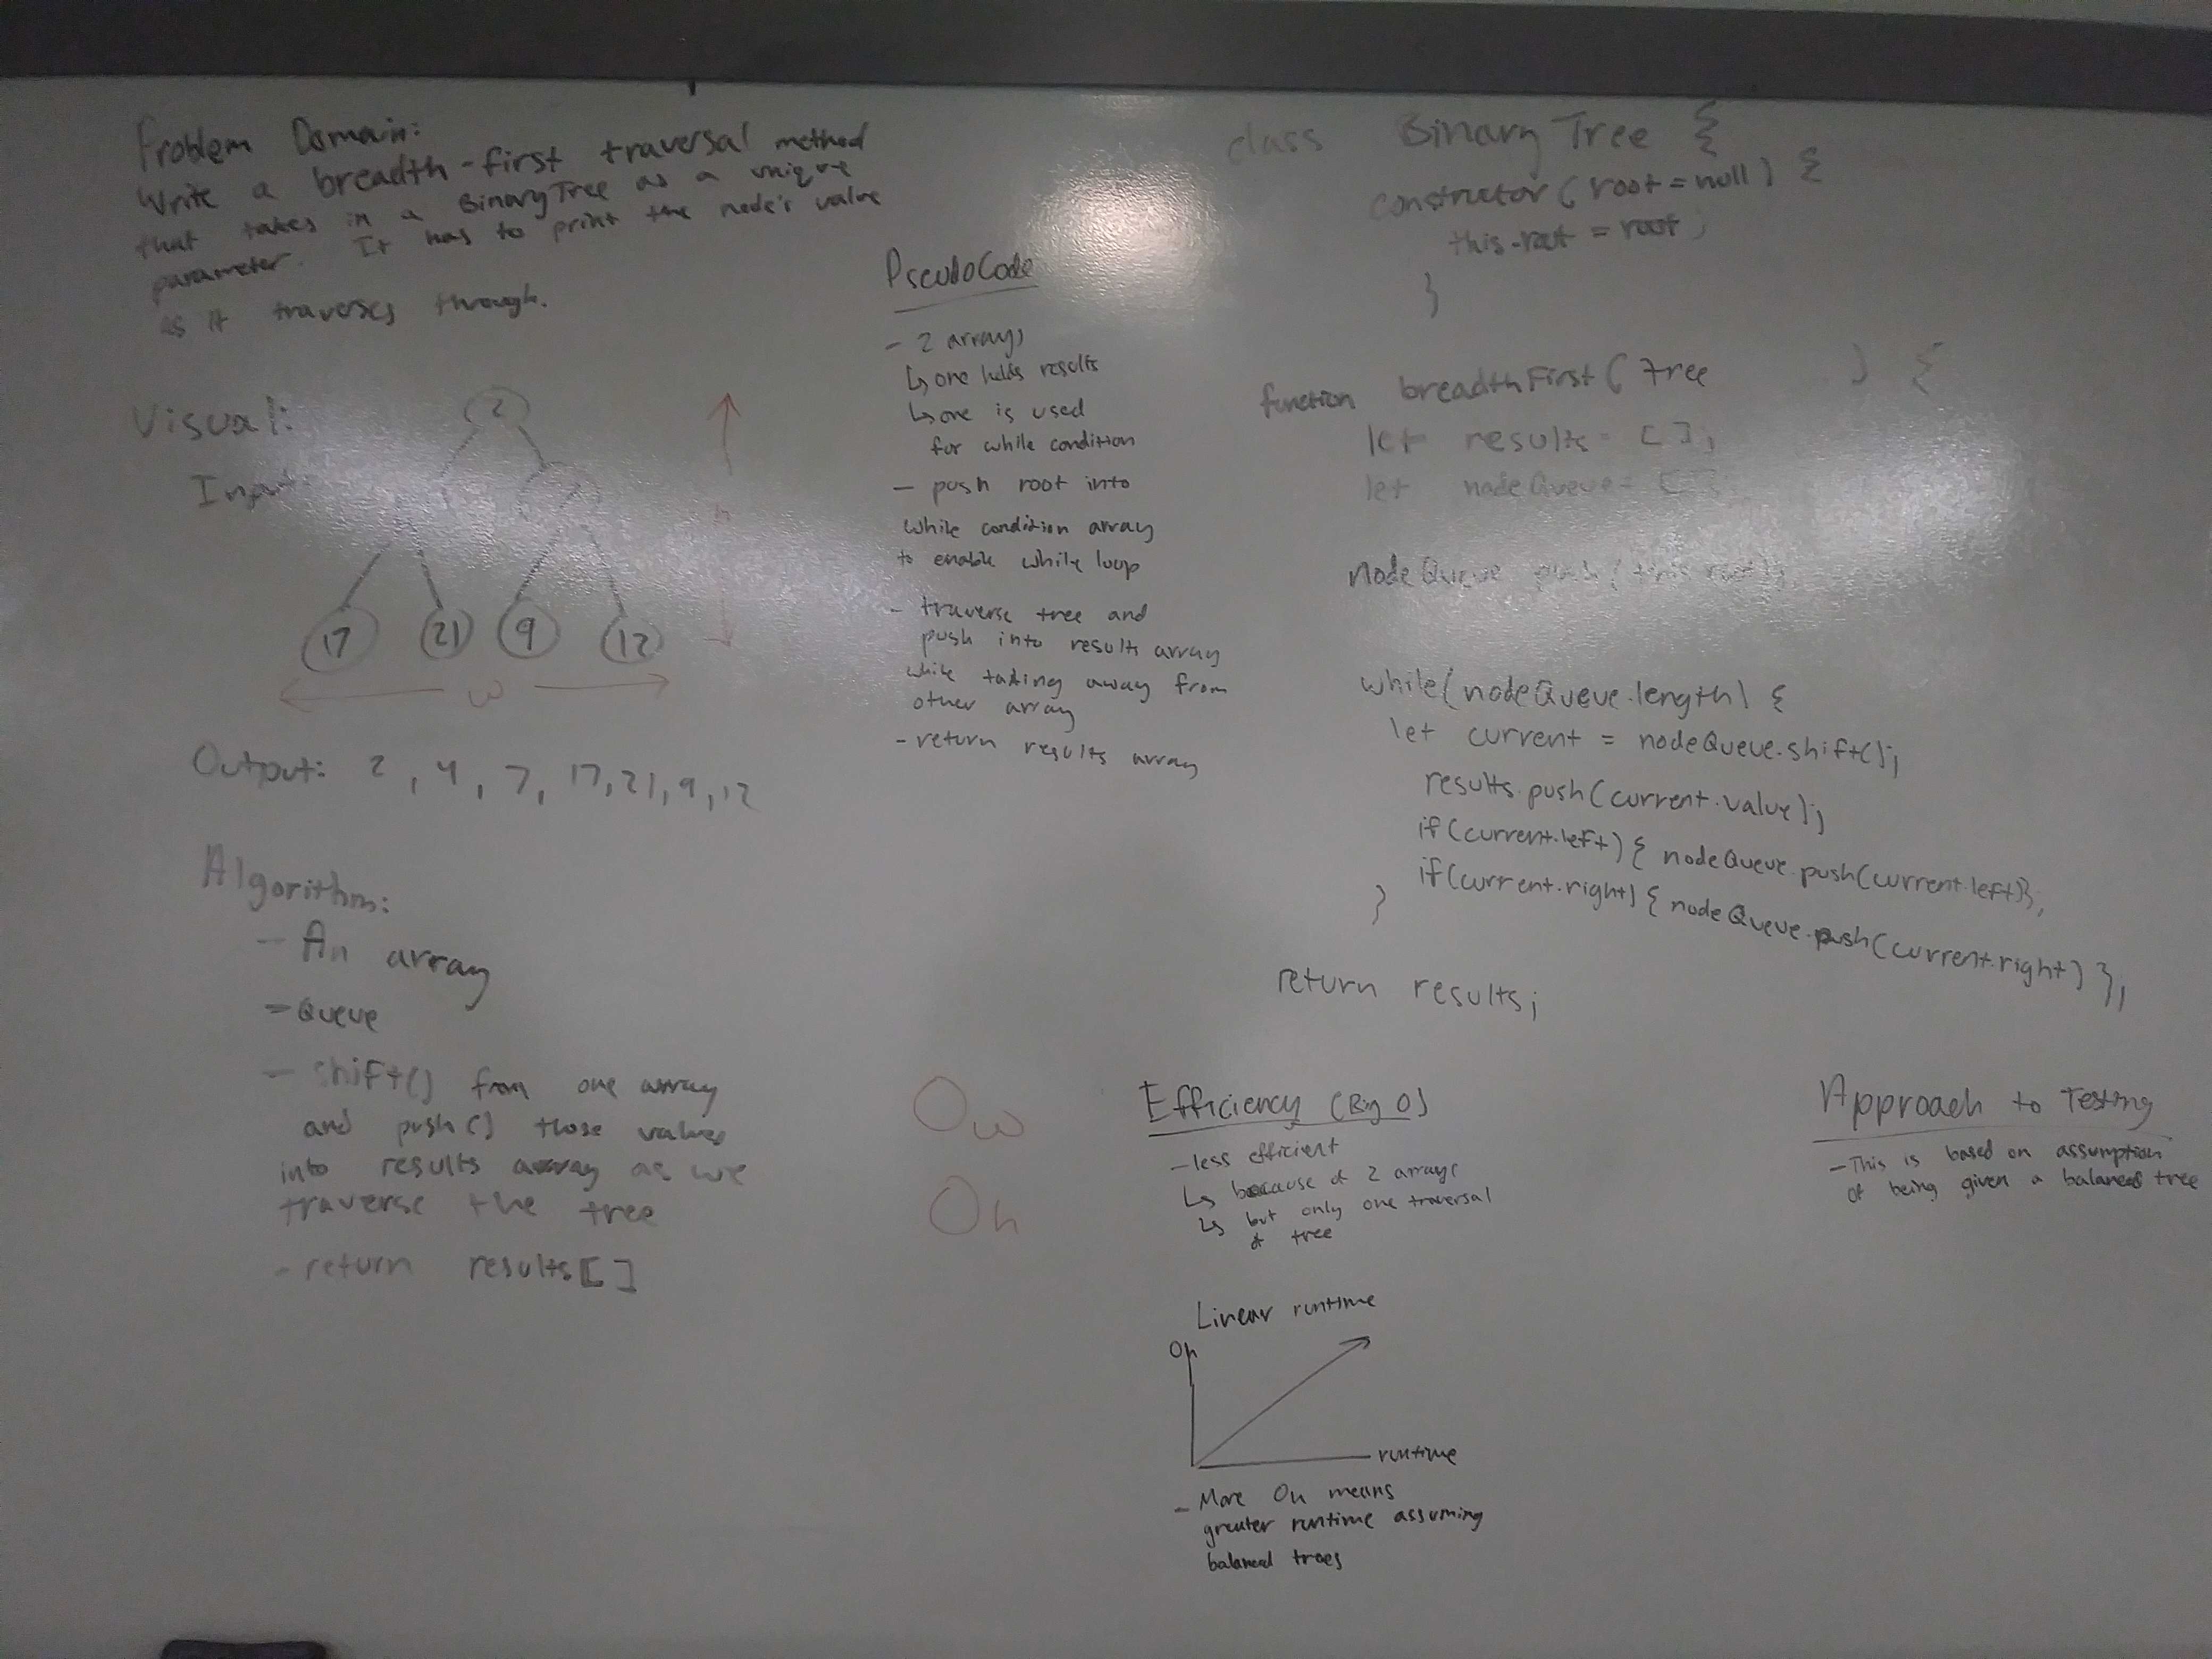 Problem Domain:
Write a breadth-first traversal method
that takes in a BinaryTree as a unique
parameter. It has to print the node's value
as it traverses through.
Visual:
Input:
2
7
17 21 9 12
h
w
Output: 2, 4, 7, 17, 21, 9, 12
Algorithm:
- An array
- Queue
- shift() from one array
and push() those values
into results array as we
traverse the tree
- return results[]
PseudoCode
- 2 arrays
↳ one holds results
↳ one is used
for while condition
- push root into
while condition array
to enable while loop
- traverse tree and
push into results array
while taking away from
other array
- return results array
Ow
Oh
class BinaryTree {
constructor(root = null) {
this.root = root;
}
function breadthFirst(tree) {
let results = [];
let nodeQueue = []
nodeQueue.push(this.root);
while(nodeQueue.length) {
let current = nodeQueue.shift();
results.push(current.value);
if(current.left) { nodeQueue.push(current.left)};
if(current.right) { nodeQueue.push(current.right) };
}
return results;
Efficiency (Big O)
- less efficient
↳ because of 2 arrays
↳ but only one traversal
of tree
Linear runtime
On
runtime
- More On means
greater runtime assuming
balanced trees
Approach to Testing
- This is based on assumption
of being given a balanced tree